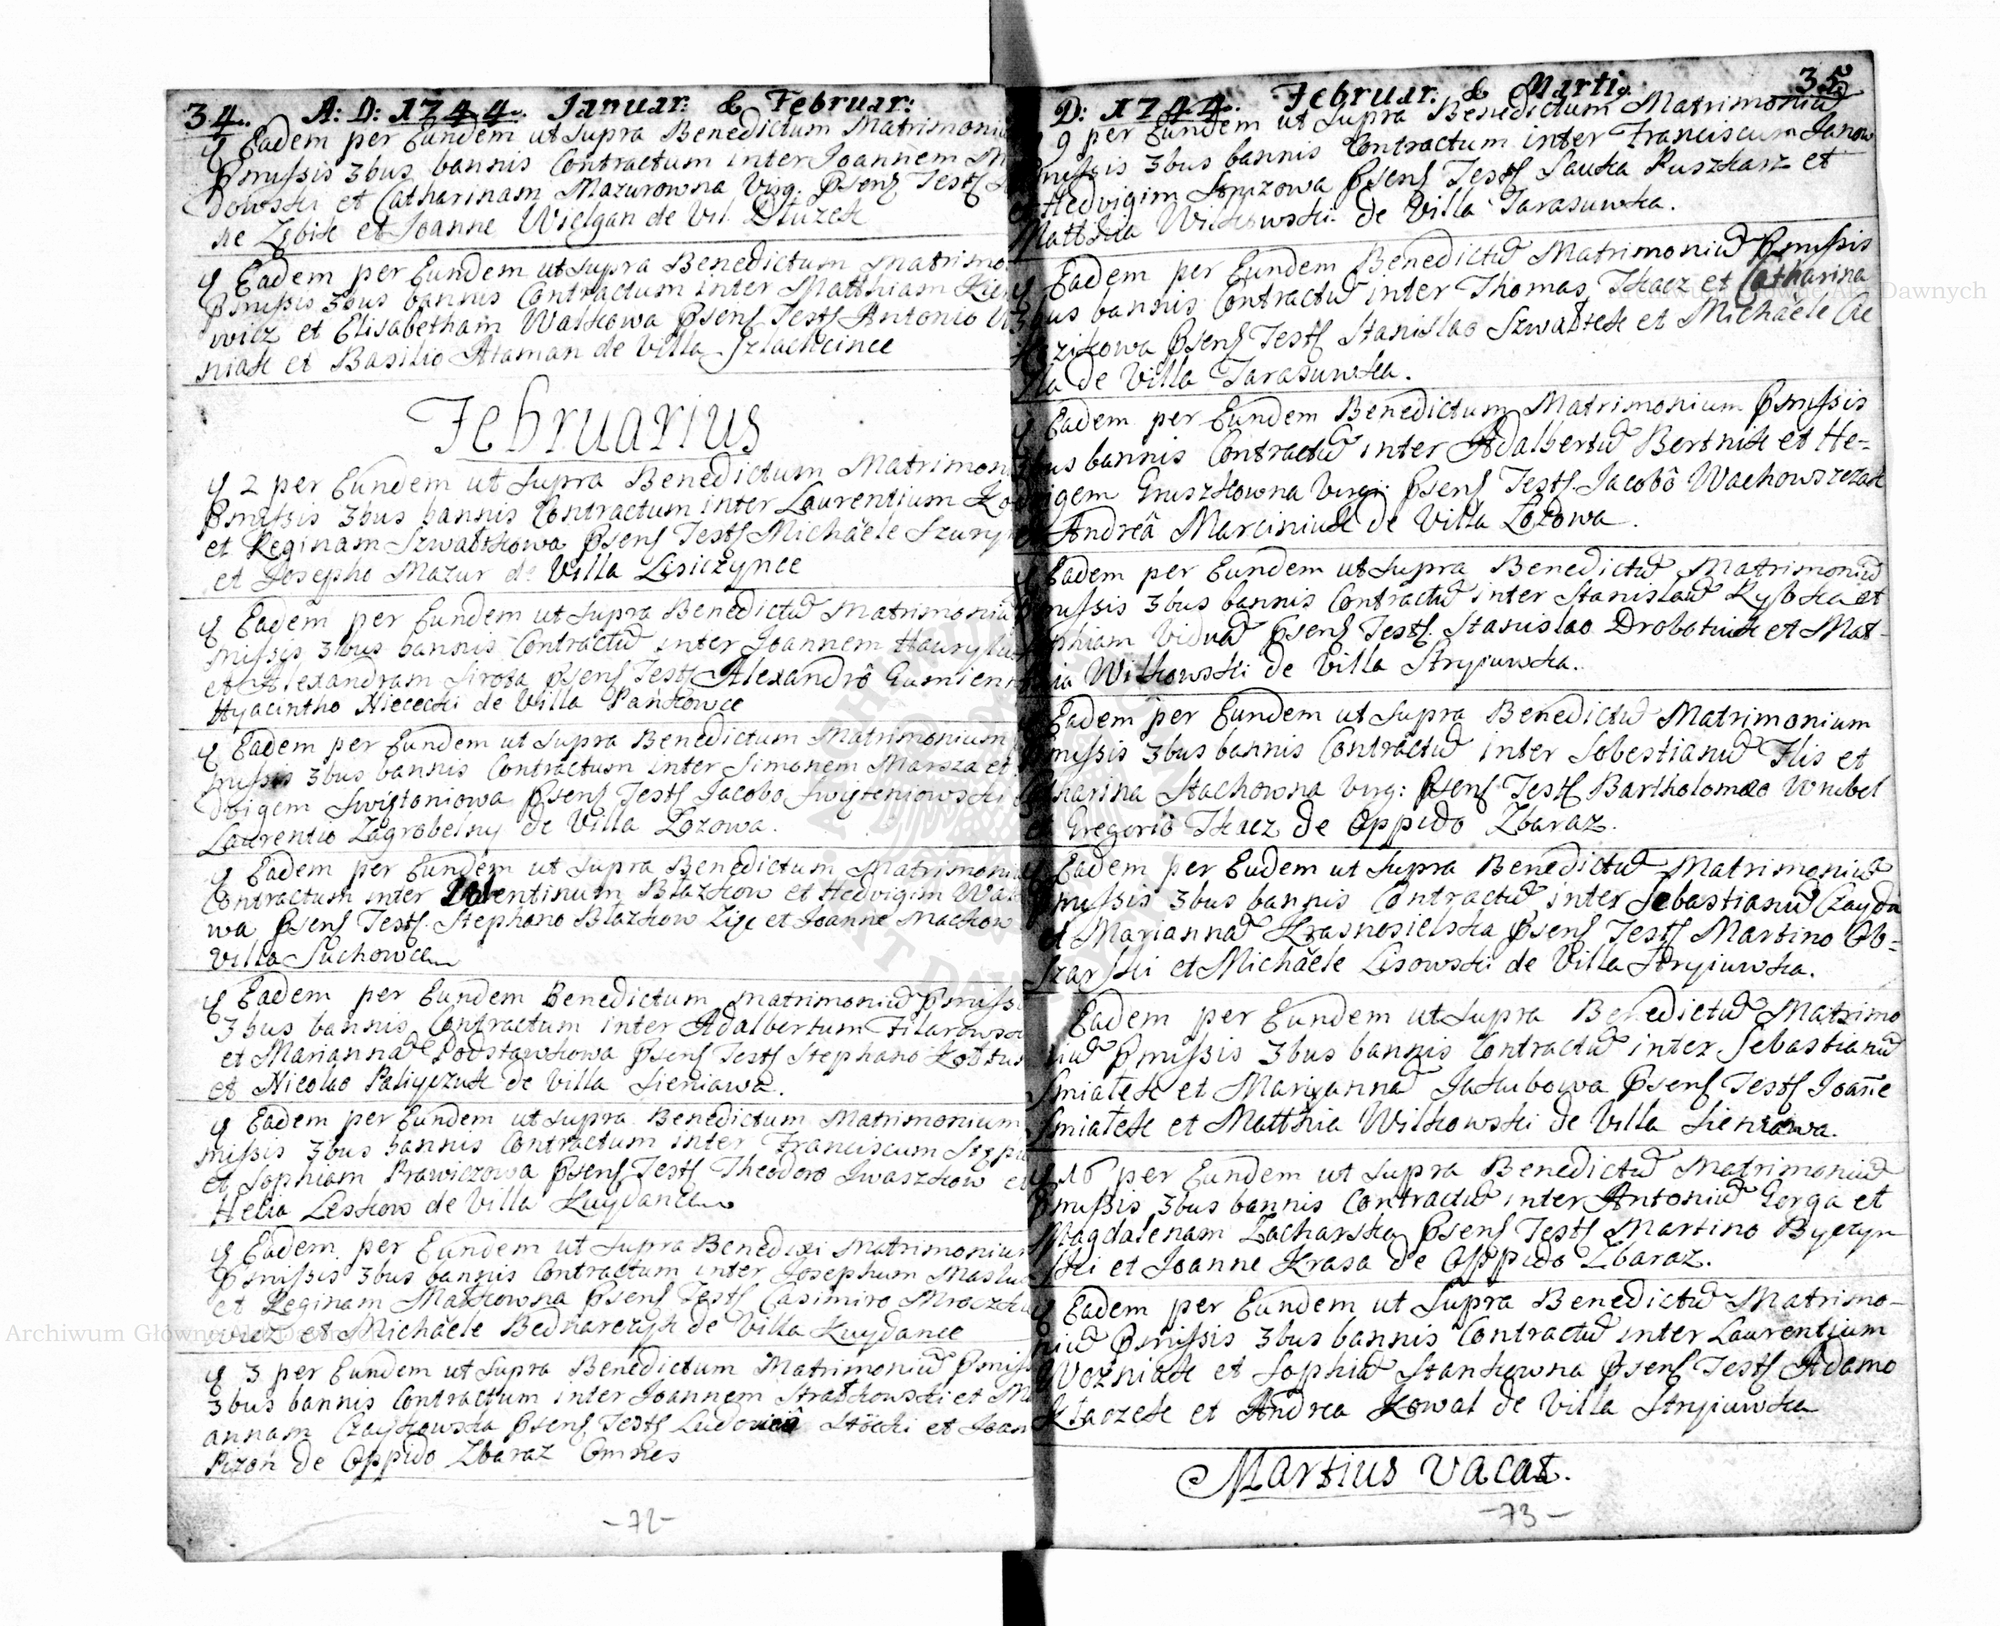 34. A: D: 1744. Januar: & Februar:
Eadem per Eundem ut Supra Benedictum Matrimoniu
Pmissis 3bus bannis Contractum inter Joannem
dowski et Catharinam Mazurowna Virg. Psens Tests
ne Zębik et Joanne Wielgan de Vil. Dłuzek
Eadem per Eundem ut Supra Benedictum Matrimo
Pmissis 3bus bannis Contractum inter Matthiam
wicz et Elisabetham Walkowa Psens Tests Antonio
niak et Basilio Ataman de Villa Szlachcince
Februarius
2 per Eundem ut Supra Benedictum Matrimon
Pmissis 3bus bannis Contractum inter Laurentium
et Reginam Szwabkowa Psens Tests Michaele
et Josepho Mazur de Villa Lisiczynce
Eadem per Eundem ut Supra Benedictu Matrimoniu
missis 3bus bannis Contractu inter Joannem
et Alexandram Sirota Psens Tests Alexandro
Hyacintho Niececki de Villa Pańkowce
Eadem per Eundem ut Supra Benedictum Matrimonium
missis 3bus bannis Contractum inter Simonem Marsza et
dvigem Swiętoniowa Psens Tests Jacobo Swięteniowski
Laurentio Zagrobelny de Villa Łozowa.
Eadem per Eundem ut Supra Benedictum Matrimoniu
Contractum inter Valentinum Błazkow et Hedvigim
wa Psens Tests. Stephano Błazkow et Joanne Machow
Villa Suchowce
Eadem per Eundem Benedictum Matrimoniu Pmiss
3bus bannis Contractum inter Adalbertum Filarowsk
et Marianna Podstawkowa Psens Tests Stephano
et Nicolao Paliyczuk de Villa Sieniawa.
Eadem per Eundem ut Supra Benedictum Matrimonium
missis 3bus bannis Contractum inter Franciscum
et Sophiam Prawiczowa Psens Tests Theodoro Iwaszkow
Helia Leskow de Villa Kuydance
Eadem per Eundem ut Supra Benedixi Matrimonium
Pmissis 3bus bannis Contractum inter Josephum
et Reginam Małkowna Psens Tests Casimiro
wicz et Michaele Bednarczyk de Villa Kuydance
3 per Eundem ut Supra Benedictum Matrimoniu Pmiss
3bus bannis Contractum inter Joannem Stratkowski et
annam Czaykowska Psens Tests Ludovico et Joan
Pizoń de Oppido Zbaraz Omnes
-72-
D: 1744. Februar: & Marti. 35
9 per Eundem ut Supra Benedictum Matrimoniu
missis 3bus bannis Contractum inter Franciscum Janow
et Hedvigim Psens Tests Sauka Puszkarz et
Matthia Wilkowski de Villa Tarasuwka.
Eadem per Eundem Benedictu Matrimoniu Pmissis
3bus bannis Contractu inter Thomas Tkacz et Catharina
kozikowa Psens Tests Stanislao Szwabtek et Michaele
de Villa Tarasuwka.
Eadem per Eundem Benedictum Matrimonium Pmissis
bus bannis Contractu inter Adalbertu Bertnik et He-
igem Gruszkowna Virg: Psens Tests. Jacobo Wachowszczak
et Andrea Marciniuk de Villa Łozowa.
Eadem per Eundem ut Supra Benedictu Matrimoniu
missis 3bus bannis Contractu inter Stanislau Rybka et
phiam Vidua Psens Tests. Stanislao Drobotuik et Mat-
ia Wilkowski de Villa Stryiuwka.
Eadem per Eundem ut Supra Benedictu Matrimonium
missis 3bus bannis Contractu inter Sobestianu Flis et
tharina Stachowna Virg: Psens Tests Bartholomeo Wrubel
et Gregorio Tkacz de Oppido Zbaraz.
Eadem per Eudem ut Supra Benedictu Matrimoniu
missis 3bus bannis Contractu inter Sebastianu Czayda
et Marianna Krasnosielska Psens Tests Martino Ob-
szarski et Michaele Lisowski de Villa Stryiuwka.
Eadem per Eundem ut Supra Benedictu Matrimo
niu Pmissis 3bus bannis Contractu inter Sebastianu
Smiałek et Maryanna Jakubowa Psens Tests Joane
Smiałek et Matthia Wilkowski de Villa Sieniawa.
16 per Eundem ut Supra Benedictu Matrimoniu
Pmissis 3bus bannis Contractu inter Antoniu Gorga et
Magdalenam Zacharska Psens Tests Martino Byczyn
ski et Joanne Krasa de Oppido Zbaraz.
Eadem per Eundem ut Supra Benedictu Matrimo-
niu Pmissis 3bus bannis Contractu inter Laurentium
Wozniak et Sophia Stankowna Psens Tests Adamo
Kłaczek et Andrea Kowal de Villa Stryiuwka
Martius vacat.
-73-